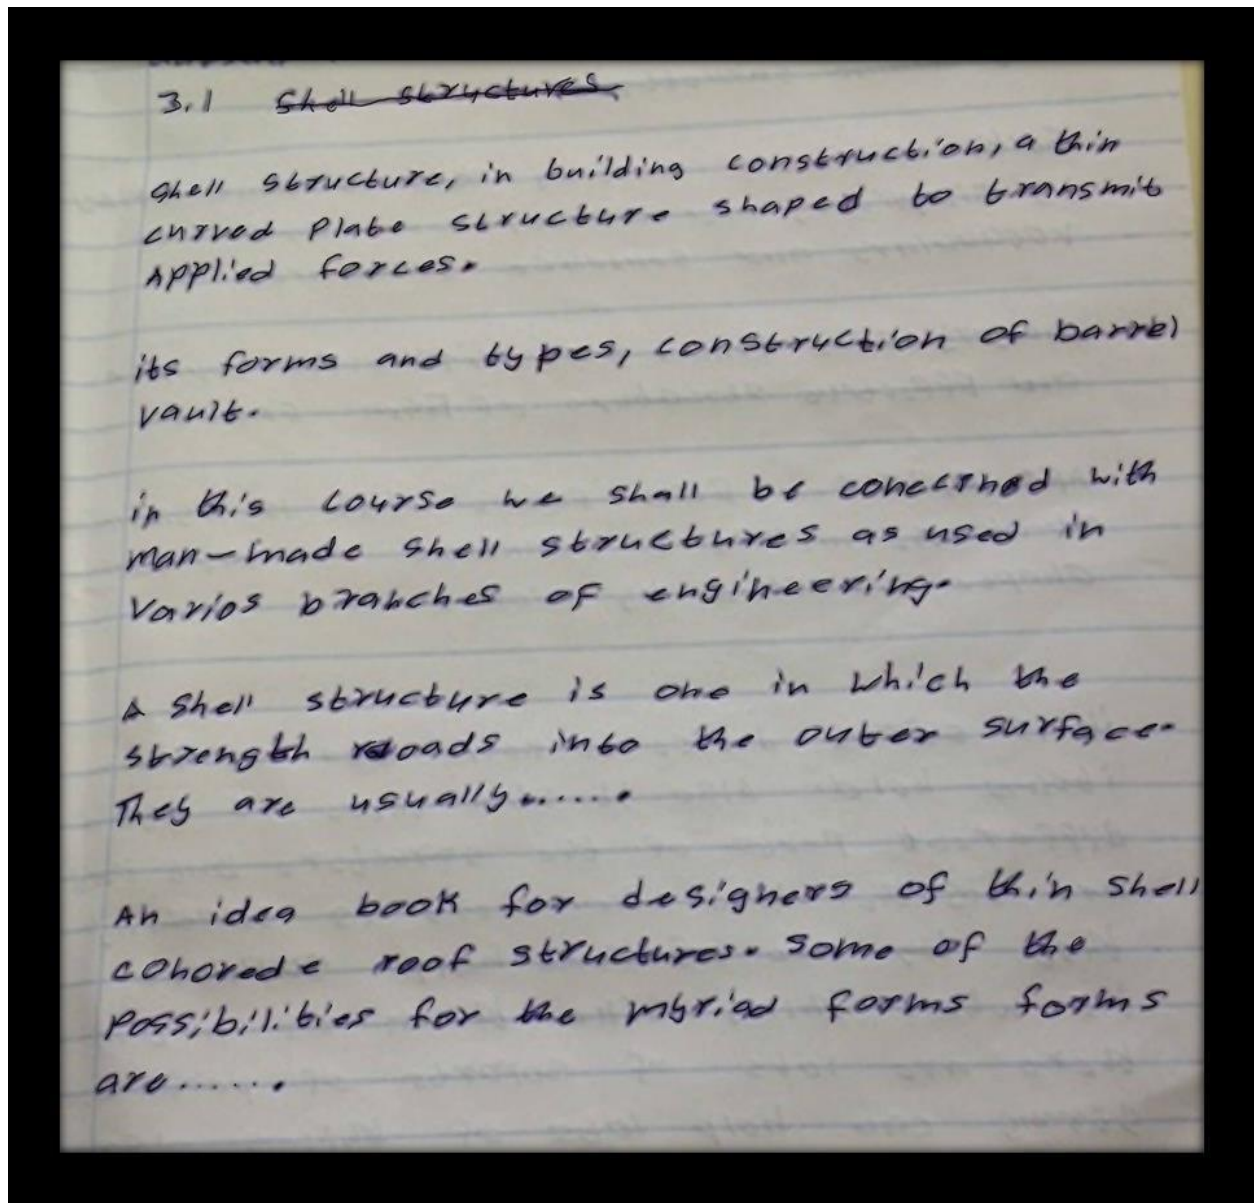 3.1 Shell structures
Shell structure, in building construction, a thin
curved plate structure shaped to transmit
Applied forces.
its forms and types, construction of barrel
vault.
in this course we shall be conecrned with
man-made shell structures as used in
varios branches of engineering.
A Shell structure is one in which the
strength roads into the outer surface.
They are usually......
An idea book for designers of thin shell
cohorede roof structures. Some of the
possibilities for the myriad forms forms
are......